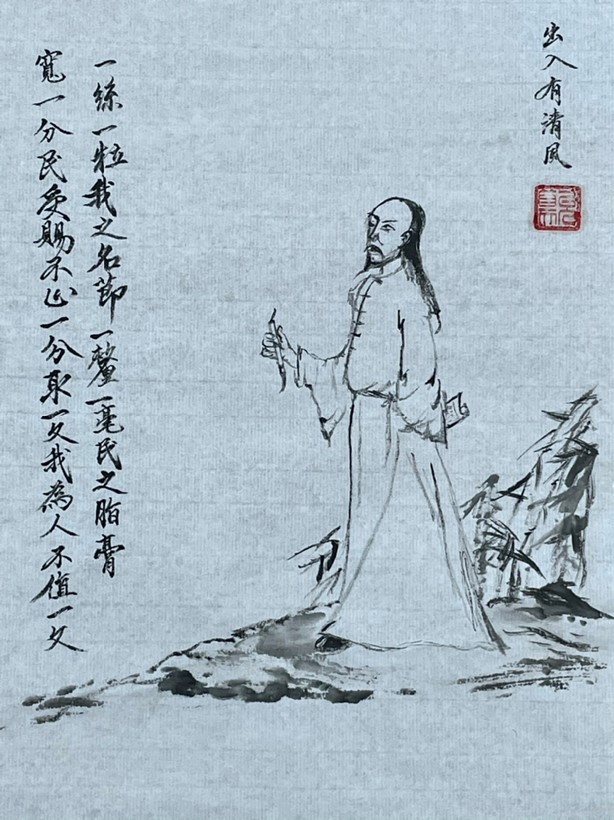 出入有清風
一絲一粒我之名節一釐一毫民之脂膏
寬一分民受賜不止一分取一文我為人不值一文